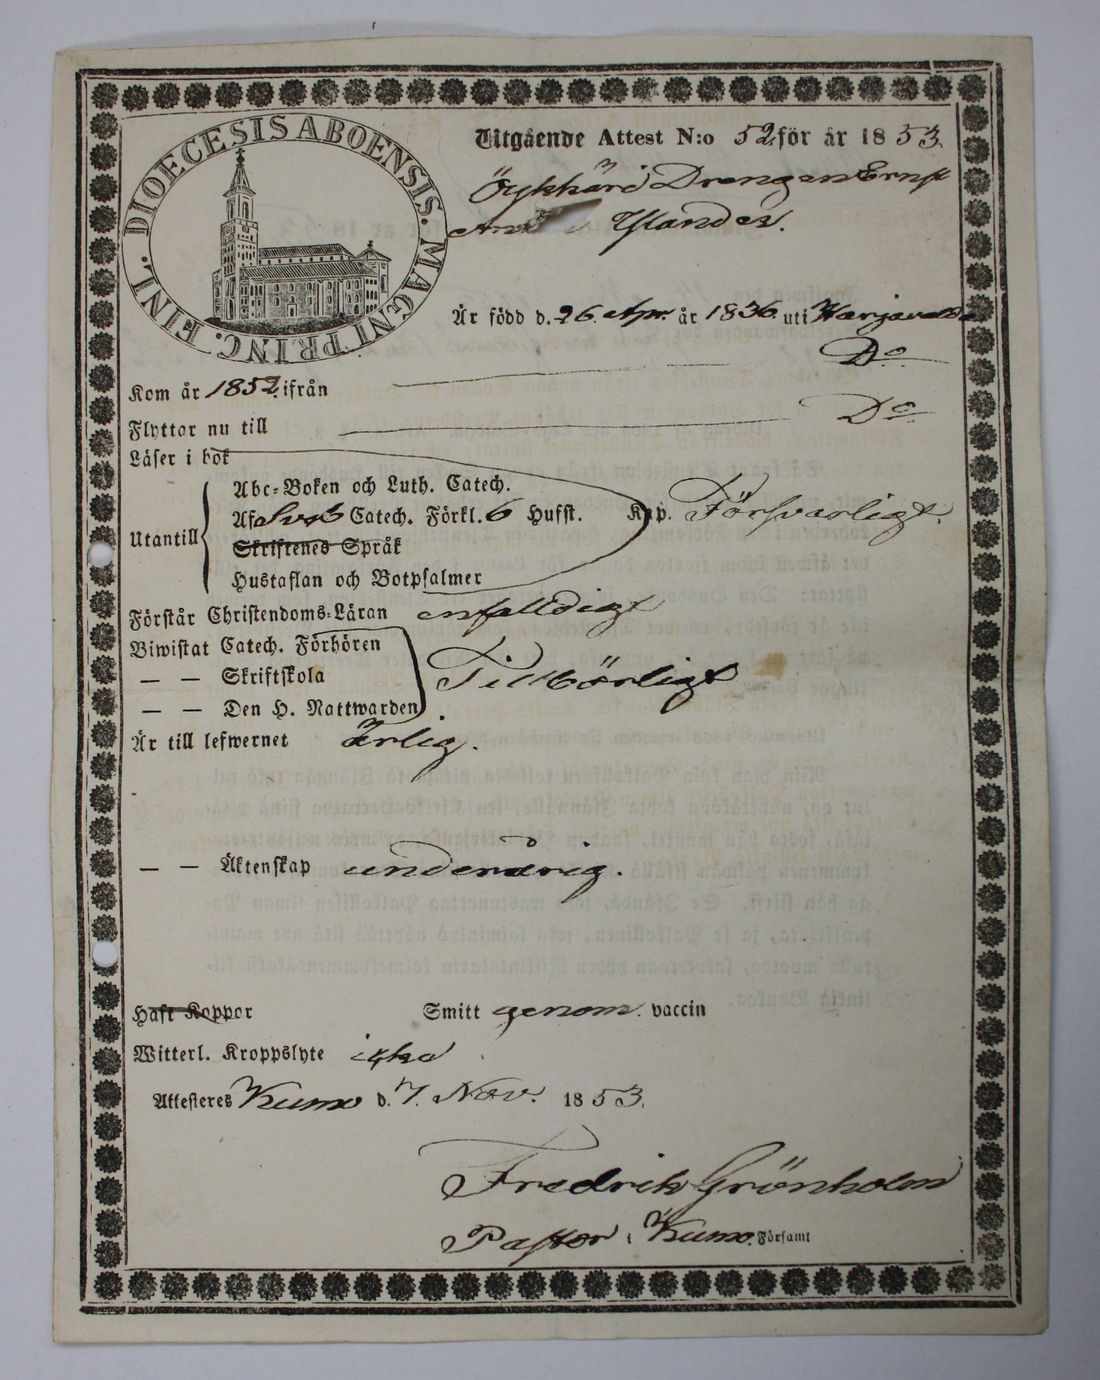 DIOECESIS ABOENSIS. MAGNI PRINC. FINL.
Utgående Attest N:o 52 för år 1853.
Öykkäri Drengen Ernst
Ylander.
Är född d. 26. Apr. år 1836 uti Harjavalda
Kom år 1852 ifrån Do
Flyttar nu till Do
Läser i bok
Abc-Boken och Luth. Catech.
Utantill Af Svb Catech. Förkl. 6 Hufst. Kap. Försvarligt.
Skriftenes Språk
Hustaflan och Botpsalmer
Förstår Christendoms-Läran enfalldigt
Biwistat Catech. Förhören
— — Skriftskola Tillbörligt
— — Den H. Nattwarden
Är till lefwernet Ärlig.
— — Äktenskap underårig.
Haft Koppor Smitt genom vaccin
Witterl. Kroppslyte icke
Attesteres Kumo d. 7. Nov. 1853.
Fredrik Grönholm
Pastor i Kumo Församl